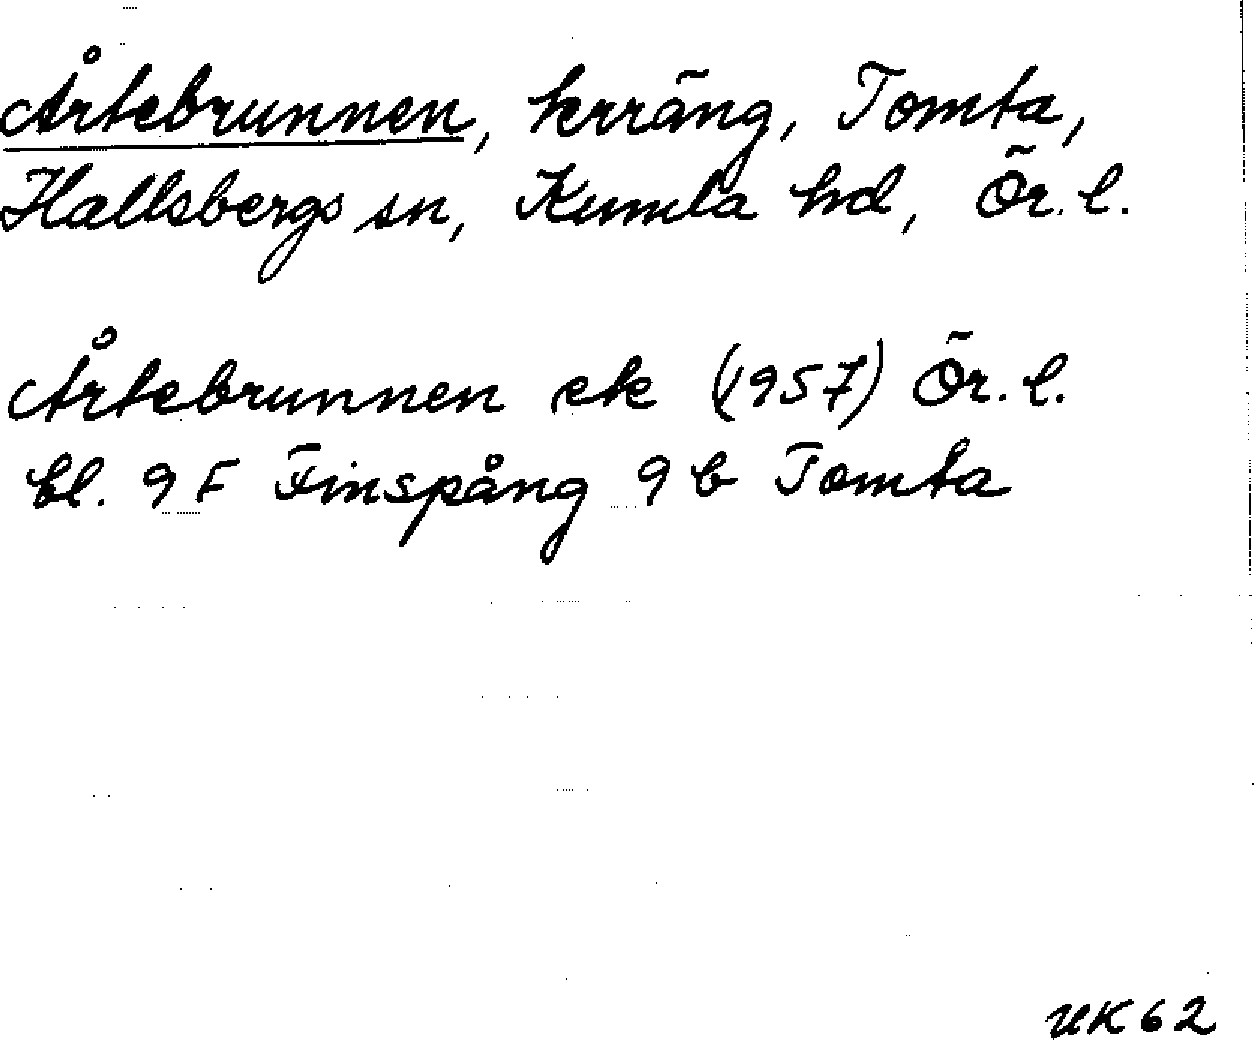 Årtebrunnen, terräng, Tomta,
Hallsbergs sn, Kumla hd, Ör. l.
Årtebrunnen ek (1957) Ör. l.
bl. 9 F Finspång 9 b Tomta
UK 62